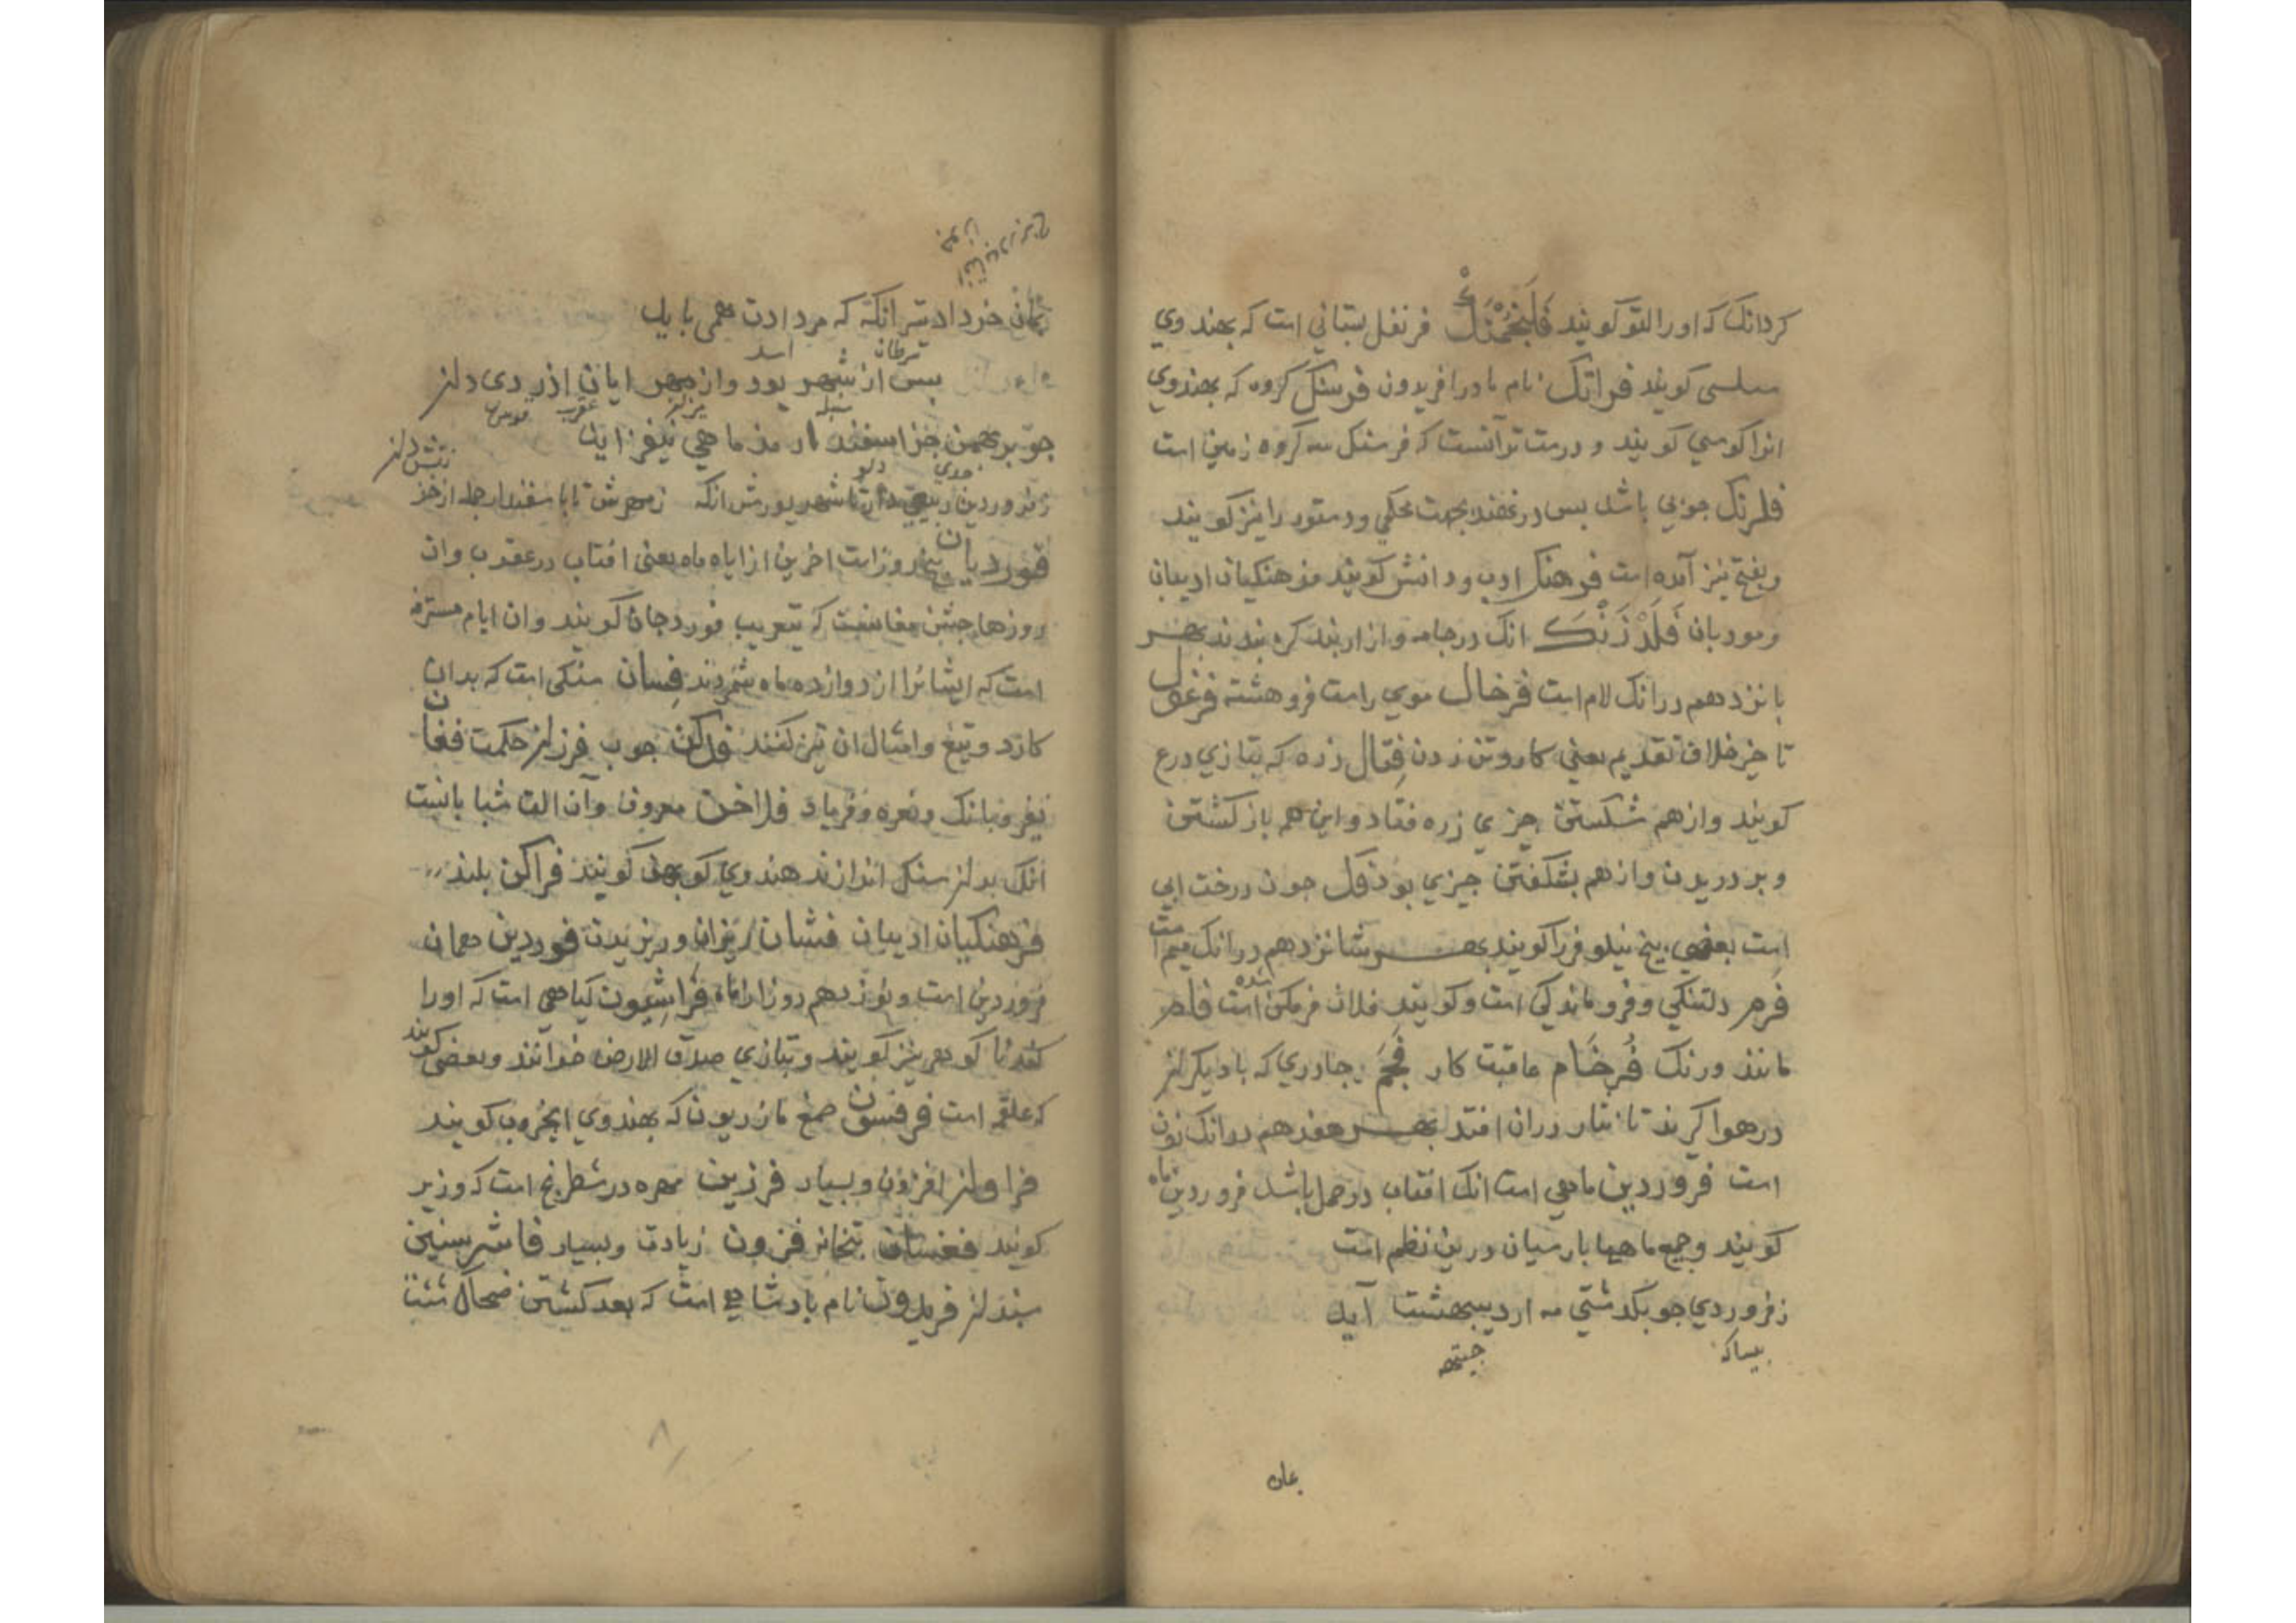 کردانک که اورا للتو کویند فلنجمشک فرنفل بستانی است که بهندوی
سلسی کویند فرانک نام مادر افریدون فرسنک کروه که بهندوی
انرا کوسی کویند و درست تر آنست که فرسنک سه کروه زمین است
جوبی باشد بس در نهند بجهت محکمی و دستور را نیز کویند
و بفتح نیز آمده است فرهنک ادب و دانش کویند فرهنکیان ادیبان
و مودبان فلرزنک انک در جامه و ازاربند کره بندند بهر
بانزدهم در انک لام است فرخال موی راست فروهشته فرغول
تاخیر خلاف تقدیم یعنی کار وتن زدن فتال زره که بتازی درع
کویند و از هم شکستن جیزی زره فتاد و این هم باز کشتن
و بر دریدن و از هم بشکفتن جیزی بود فل جون درخت ابی
است بعضی بیخ نیلوفر را کویند بهر شانزدهم در انک میم است
فرم دلتنکی و فرو ماندکی است و کویند فلان فرمکن شده است فام
مانند و رنک فرخام عاقبت کار فجم جادری که با دیکر لز
در هوا کیرند تا نثار دران افتد بهر هفدهم در انک نون
است فروردین ماهی است انک افتاب در حمل باشد فروردین ماه
کویند و جمع ماهیا بارسیان درین نظم است
ز فروردی جو بکدشتی مه اردیبهشت آید
بیساک جیته
بمان
بمان خرداد تیر انکه که مردادت همی باید
سرطان اسد
بس از شهریور و از مهر ابان اذر دی دلز
سنبله میزان عقرب قوس
جو بر بهمن جز اسفندارمذ ماهی نیفزاید
جدی دلو
ز فروردین ربیعی دان تا شهریورش انکه ز مهرش تا باسفندار جمله از خز
فوردیان بنج روز است اخرین از اباه ماه یعنی افتاب در عقرب و ان
روزها جشن مغانست که بتعریب فوردجان کویند وان ایام مسترقه
است که ایشانرا از دوازده ماه شمردند فسان سنکی است که بدان
کارد و تیغ و امثال ان تیز کنند فرکن جوب فرزان حکمت فغان
نفیر و بانک و نعره و فریاد فلاخن معروف و آن الت شبانانست
انک بدلز سنک اندازند هندوی کوبهن کویند فراکن بلند
فرهنکیان ادیبان فشان ریزان و ریزیدن فوردین همان
فروردین است و نوزدهم روز از ماه فراشیون کیاهی است که اورا
کندنا کوهی نیز کویند و بتازی صدف الارض خوانند و بعضی کویند
که علقم است فرفیون صمغ مازریون که بهندوی کویند
فراوان افزون و بسیار فرزین مهره در شطرنج است که وزیر
کویند فغستان بتخانه فزون زیادت و بسیار فاشرستین
سندلز فریدون نام بادشاهی است که بعد کشتن ضحاک نشست